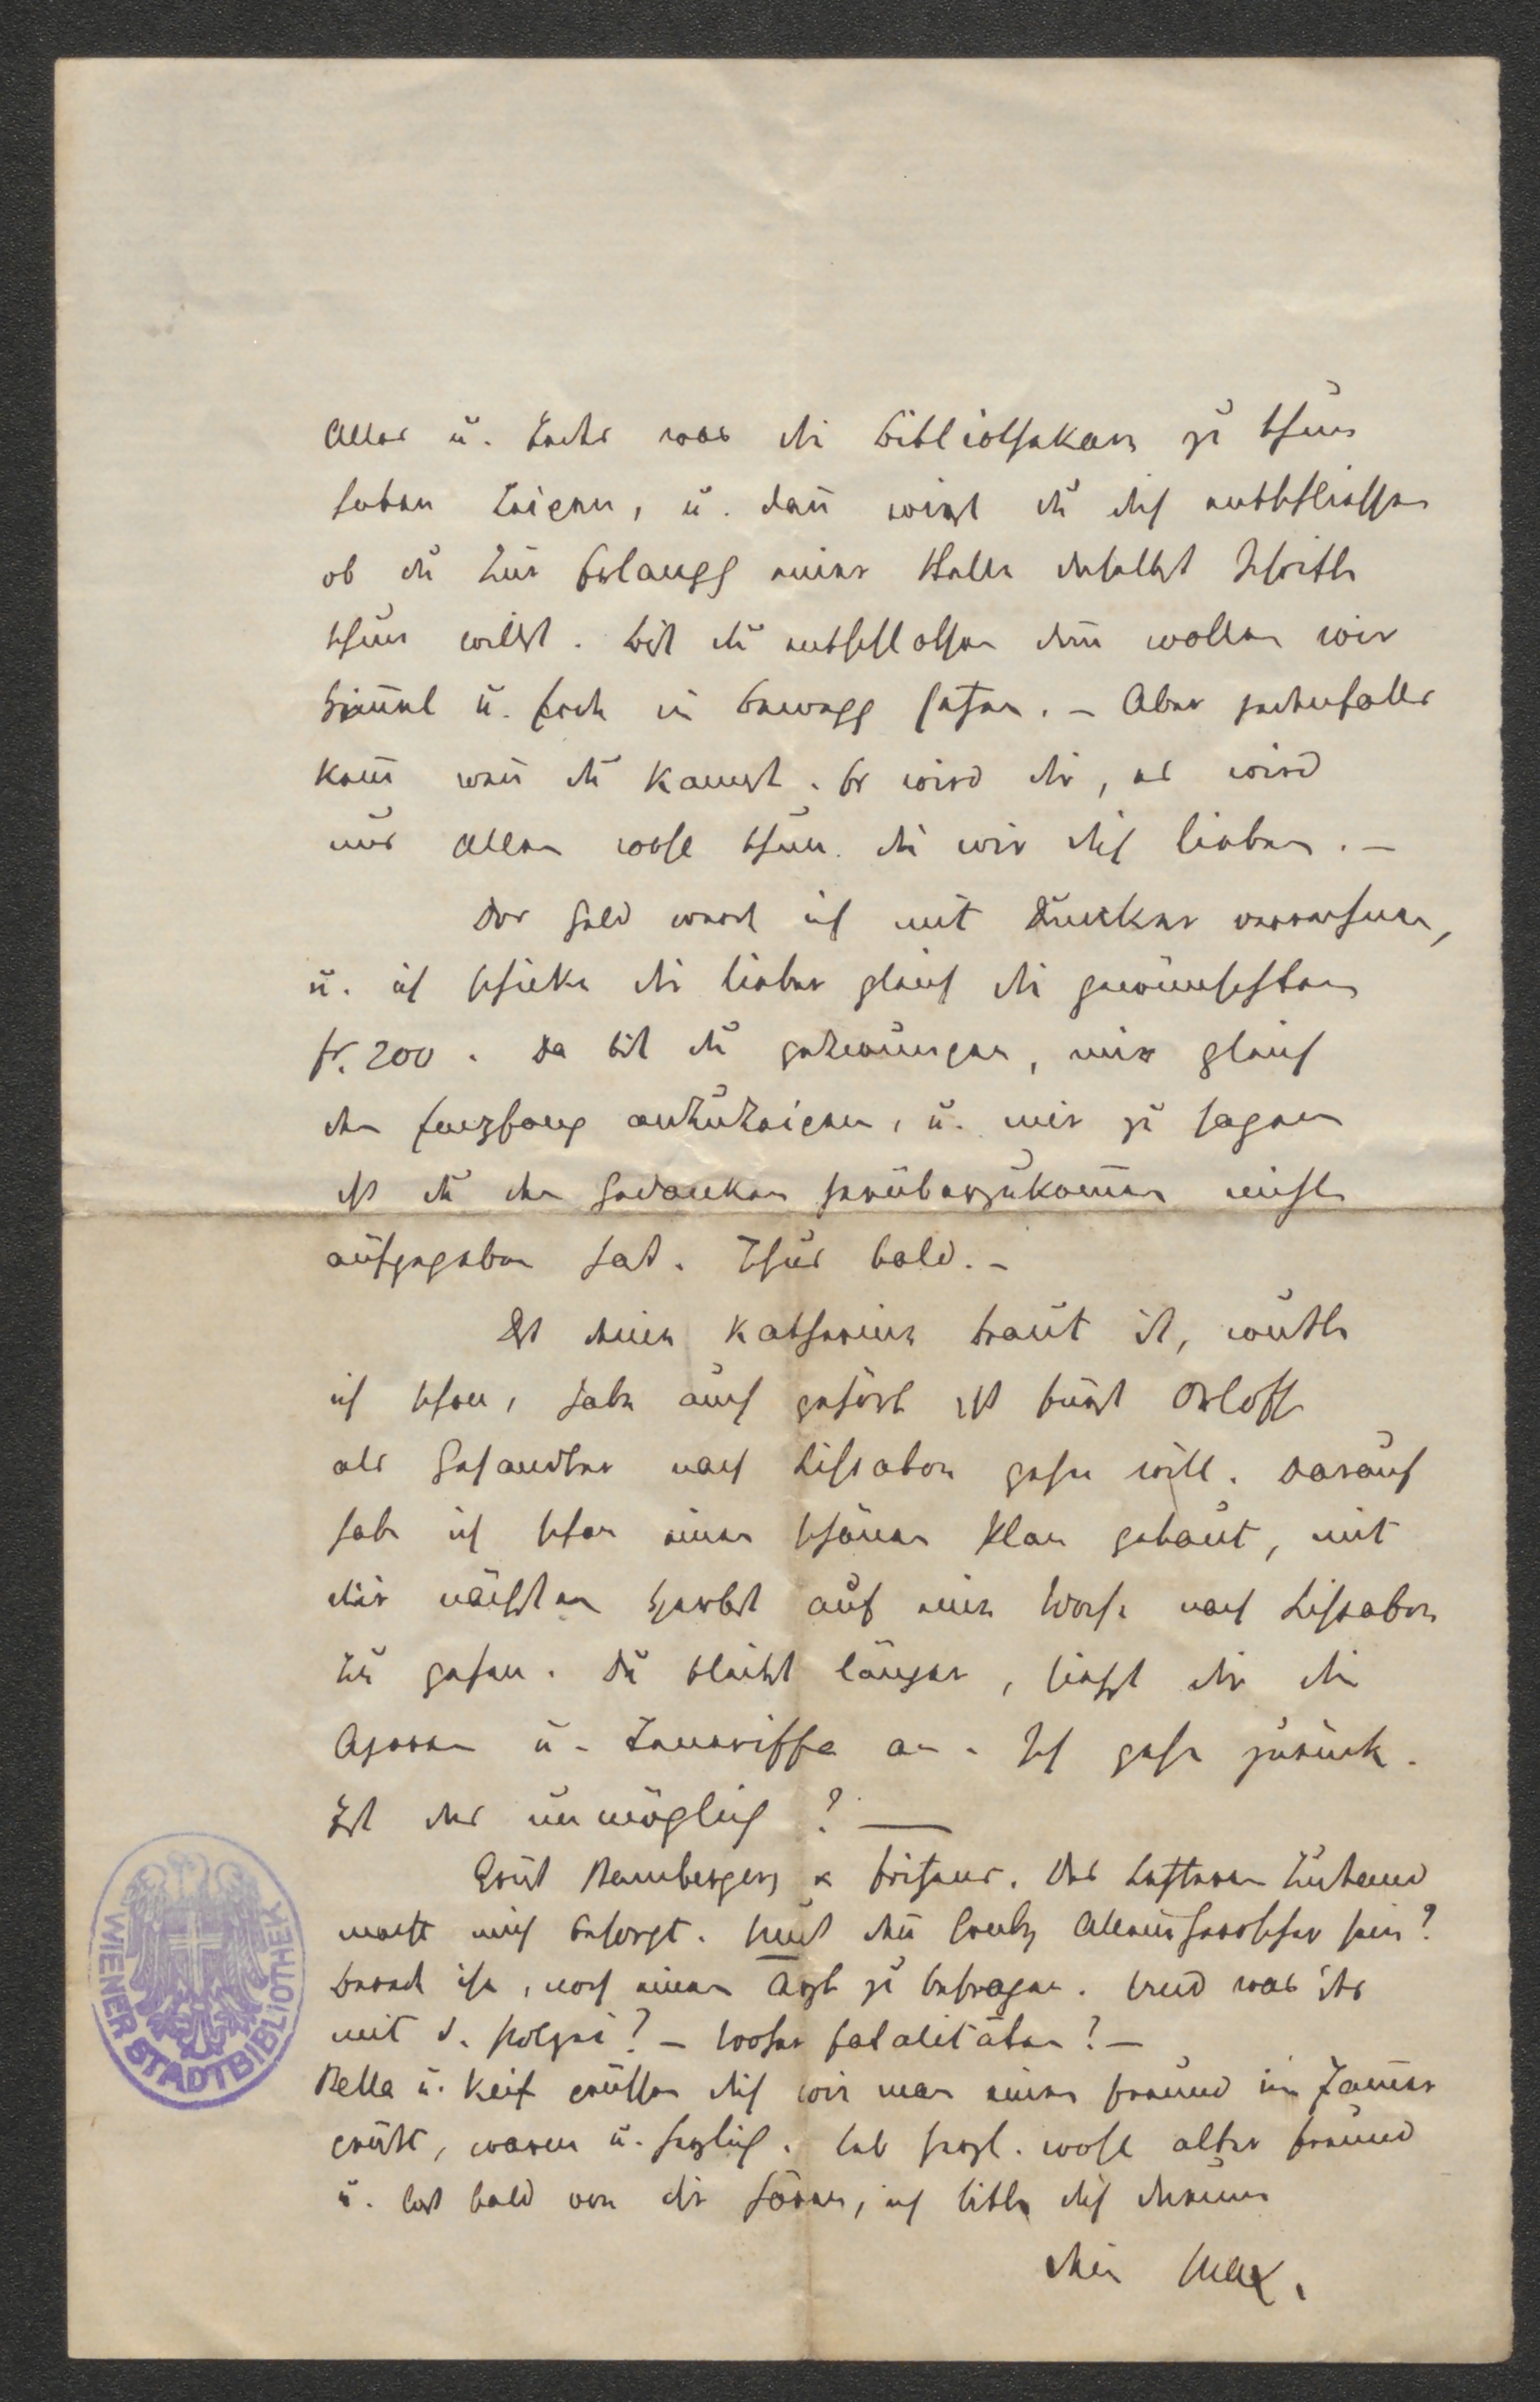 Alles u. Jedes was die Bibliothekare zu thun
haben zeigen, u. dann wirst du dich entschließen
ob du zur Erlangg einer Stelle daselbst Schritte
thun willst. Bist du entschlossen dann wollen wir
Himmel u. Erde in Bewegg setzen. – Aber jedenfalls
komm wann du kannst. Es wird dir, es wird
uns Allen wohl thun die wir dich lieben. –
Das Geld werd ich mit Duncker verrechnen,
u. ich schicke dir lieber gleich die gewünschten
fr. 200. Da bist du gezwungen, mir gleich
den Empfang anzuzeigen, u. mir zu sagen
daß du den Gedanken herüberzukommen nicht
aufgegeben hast. Thus bald. –
Daß deine Katharine Braut ist, wußte
ich schon, habe auch gehört daß Fürst Orloff
als Gesandter nach Lissabon gehen will. Darauf
hab ich schon einen schönen Plan gebaut, mit
dir nächsten Herbst auf eine Woche nach Lissabon
zu gehen. Du bleibst länger, siehst dir die
Azoren u. Teneriffa an. Ich gehe zurück.
Ist das unmöglich? —
Grüß Bambergers & Frisens. Des Letzteren Zustand
macht mich besorgt. Muß denn Alleinherrscher sein?
Berede ihn, noch einen Arzt zu befragen. Und was ists
mit d. ? – Woher Fatalitäten? –
Bella u. Keit grüßen dich wie man einen Freund im Jammer
grüßt, warm u. herzlich. Leb herzl. wohl alter Freund
u. laß bald von dir hören, ich bitte dich darum
dein Max.
WIENER STADTBIBLIOTHEK